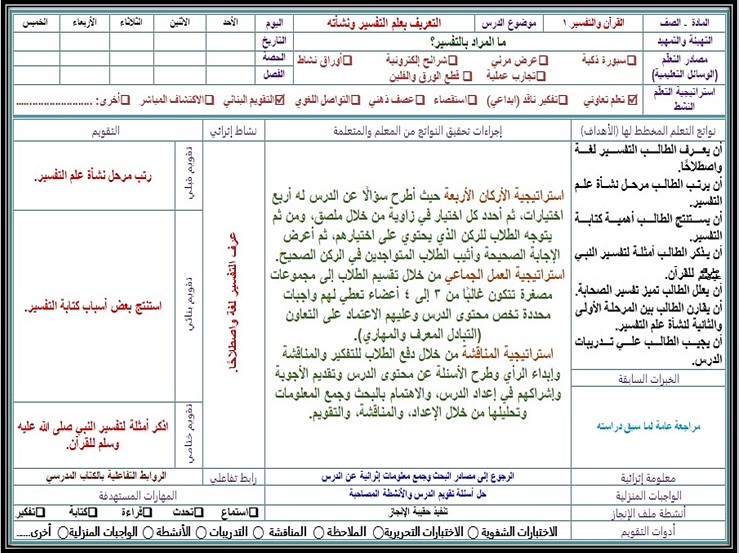 المادة - الصف القرآن والتفسير ١ موضوع الدرس التعريف بعلم التفسير ونشأته اليوم الأحد الاثنين الثلاثاء الأربعاء الخميس
التهيئة والتمهيد ما المراد بالتفسير؟ التاريخ
مصادر التعلّم (الوسائل التعليمية) ☐سبورة ذكية ☐عرض مرئي ☐شرائح إلكترونية ☐أوراق نشاط الحصة
☐تجارب عملية ☐قطع الورق والفلين الفصل
استراتيجية التعلّم النشط ☑تعلم تعاوني ☐تفكير ناقد (ابداعي) ☐استقصاء ☐عصف ذهني ☐التواصل اللغوي ☑التقويم البنائي ☐الاكتشاف المباشر ☐أخرى: ..........................
نواتج التعلم المخطط لها (الأهداف)
أن يعرف الطالب التفسير لغة
واصطلاحًا.
أن يرتب الطالب مرحل نشأة علم
التفسير.
أن يستنتج الطالب أهمية كتابة
التفسير.
أن يذكر الطالب أمثلة لتفسير النبي
ﷺ للقرآن.
أن يعلل الطالب تميز تفسير الصحابة.
أن يقارن الطالب بين المرحلة الأولى
والثانية لنشأة علم التفسير.
أن يجيب الطالب على تدريبات
الدرس.
الخبرات السابقة
مراجعة عامة لما سبق دراسته
إجراءات تحقيق النواتج من المعلم والمتعلمة
استراتيجية الأركان الأربعة حيث أطرح سؤالًا عن الدرس له أربع
اختيارات، ثم أحدد كل اختيار في زاوية من خلال ملصق، ومن ثم
يتوجه الطلاب للركن الذي يحتوي على اختيارهم، ثم أعرض
الإجابة الصحيحة وأثيب الطلاب المتواجدين في الركن الصحيح.
استراتيجية العمل الجماعي من خلال تقسيم الطلاب إلى مجموعات
مصغرة تتكون غالبًا من ٣ إلى ٤ أعضاء تعطي لهم واجبات
محددة تخص محتوى الدرس وعليهم الاعتماد على التعاون
(التبادل المعرف والمهاري).
استراتيجية المناقشة من خلال دفع الطلاب للتفكير والمناقشة
وإبداء الرأي وطرح الأسئلة عن محتوى الدرس وتقديم الأجوبة
وإشراكهم في إعداد الدرس، والاهتمام بالبحث وجمع المعلومات
وتحليلها من خلال الإعداد، والمناقشة، والتقويم.
نشاط إثرائي
عرف التفسير لغة واصطلاحًا.
التقويم
تقويم قبلي
رتب مرحل نشأة علم التفسير.
تقويم بنائي
استنتج بعض أسباب كتابة التفسير.
تقويم ختامي
اذكر أمثلة لتفسير النبي صلى الله عليه
وسلم للقرآن.
معلومة إثرائية الرجوع إلى مصادر البحث وجمع معلومات إثرائية عن الدرس رابط تفاعلي الروابط التفاعلية بالكتاب المدرسي
الواجبات المنزلية حل أسئلة تقويم الدرس والأنشطة المصاحبة المهارات المستهدفة
أنشطة ملف الإنجاز تنفيذ حقيبة الإنجاز ☐استماع ☐تحدث ☐قراءة ☐كتابة ☐تفكير
أدوات التقويم الاختبارات الشفوية◯ الاختبارات التحريرية◯ الملاحظة◯ المناقشة◯ التدريبات◯ الأنشطة◯ الواجبات المنزلية◯ أخرى......